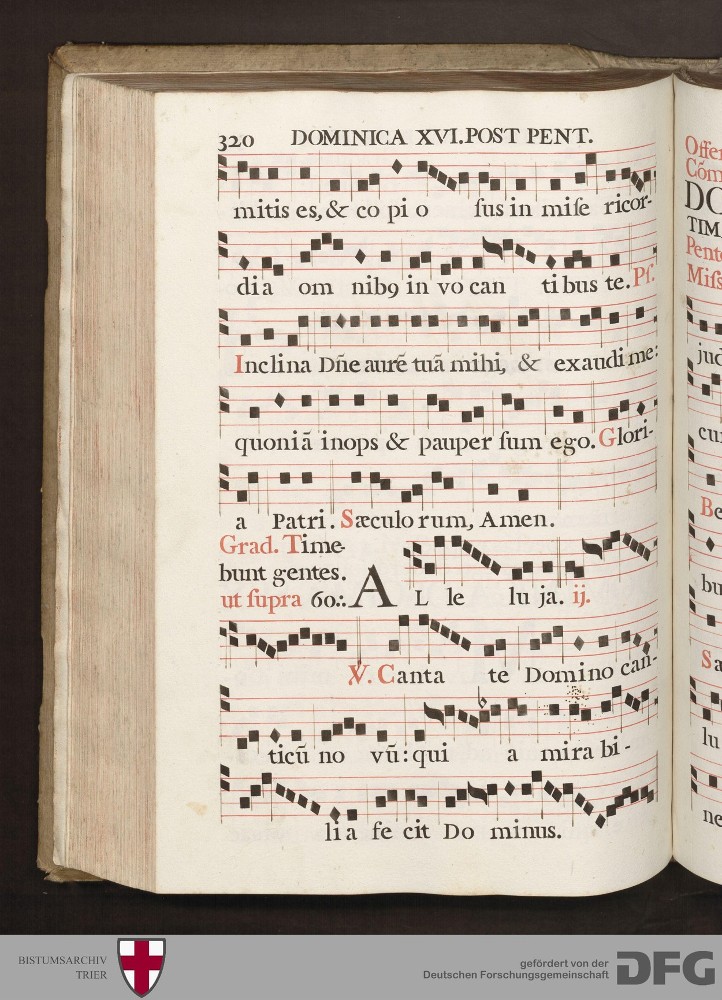 320 DOMINICA XVI. POST PENT.
mitis es, & co pi o sus in mise ricor-
dia om nibꝰ in vo can tibus te. Ps.
Inclina Dñe aurẽ tuã mihi, & exaudi me:
quoniã inops & pauper sum ego. Glori-
a Patri. Sæculo rum, Amen.
Grad. Time-
bunt gentes.
ut supra 60.:. A L le lu ja. ij.
℣. Canta te Domino can-
ticũ no vũ: qui a mira bi-
li a fe cit Do minus.
Offer
Cóm
DO
TIM
Pente
Miss
jud
cu
Be
bu
Sa
lu
ne
BISTUMSARCHIV
TRIER
gefördert von der
Deutschen Forschungsgemeinschaft
DFG